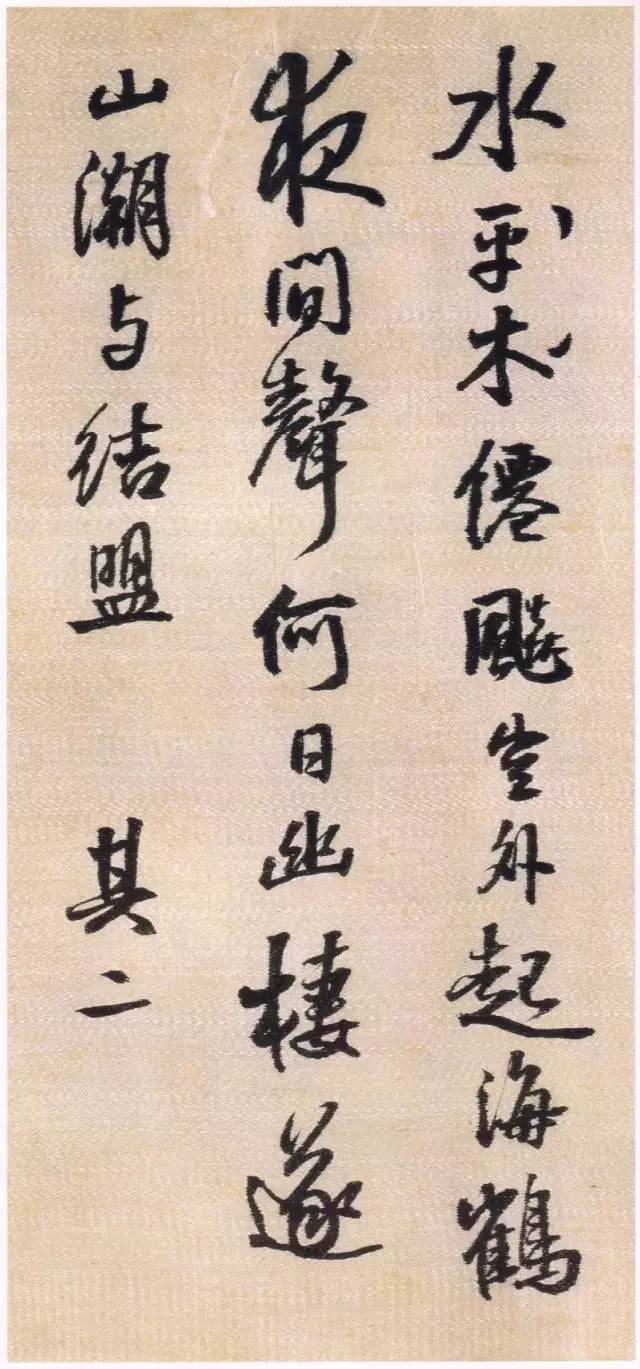 水平木僊飈空外起海鶴
夜間聲何日幽棲遂
山湖与結盟 其二